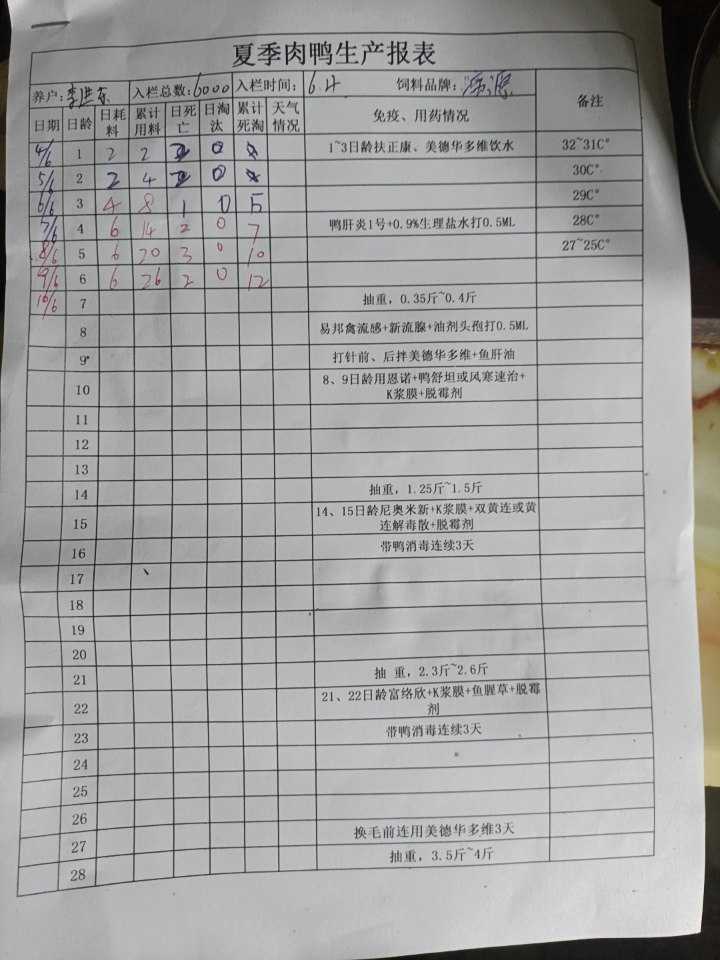 夏季肉鸭生产报表
养户: 李洪东 入栏总数: 6000 入栏时间: 6.4 饲料品牌: 备注
日期 日龄 日耗料 累计用料 日死亡 日淘汰 累计死淘 天气情况 免疫、用药情况
4/6 1 2 2 0 1~3日龄扶正康、美德华多维饮水 32~31C°
5/6 2 2 4 0 30C°
6/6 3 4 8 1 0 5 29C°
7/6 4 6 14 2 0 7 鸭肝炎1号+0.9%生理盐水打0.5ML 28C°
8/6 5 6 20 3 0 10 27~25C°
9/6 6 6 26 2 0 12
10/6 7 抽重, 0.35斤~0.4斤
8 易邦禽流感+新流腺+油剂头孢打0.5ML
9 打针前、后拌美德华多维+鱼肝油
10 8、9日龄用恩诺+鸭舒坦或风寒速治+
K浆膜+脱霉剂
11
12
13
14 抽重, 1.25斤~1.5斤
15 14、15日龄尼奥米新+K浆膜+双黄连或黄
连解毒散+脱霉剂
16 带鸭消毒连续3天
17
18
19
20
21 抽 重, 2.3斤~2.6斤
22 21、22日龄富络欣+K浆膜+鱼腥草+脱霉
剂
23 带鸭消毒连续3天
24
25
26
27 换毛前连用美德华多维3天
28 抽重, 3.5斤~4斤